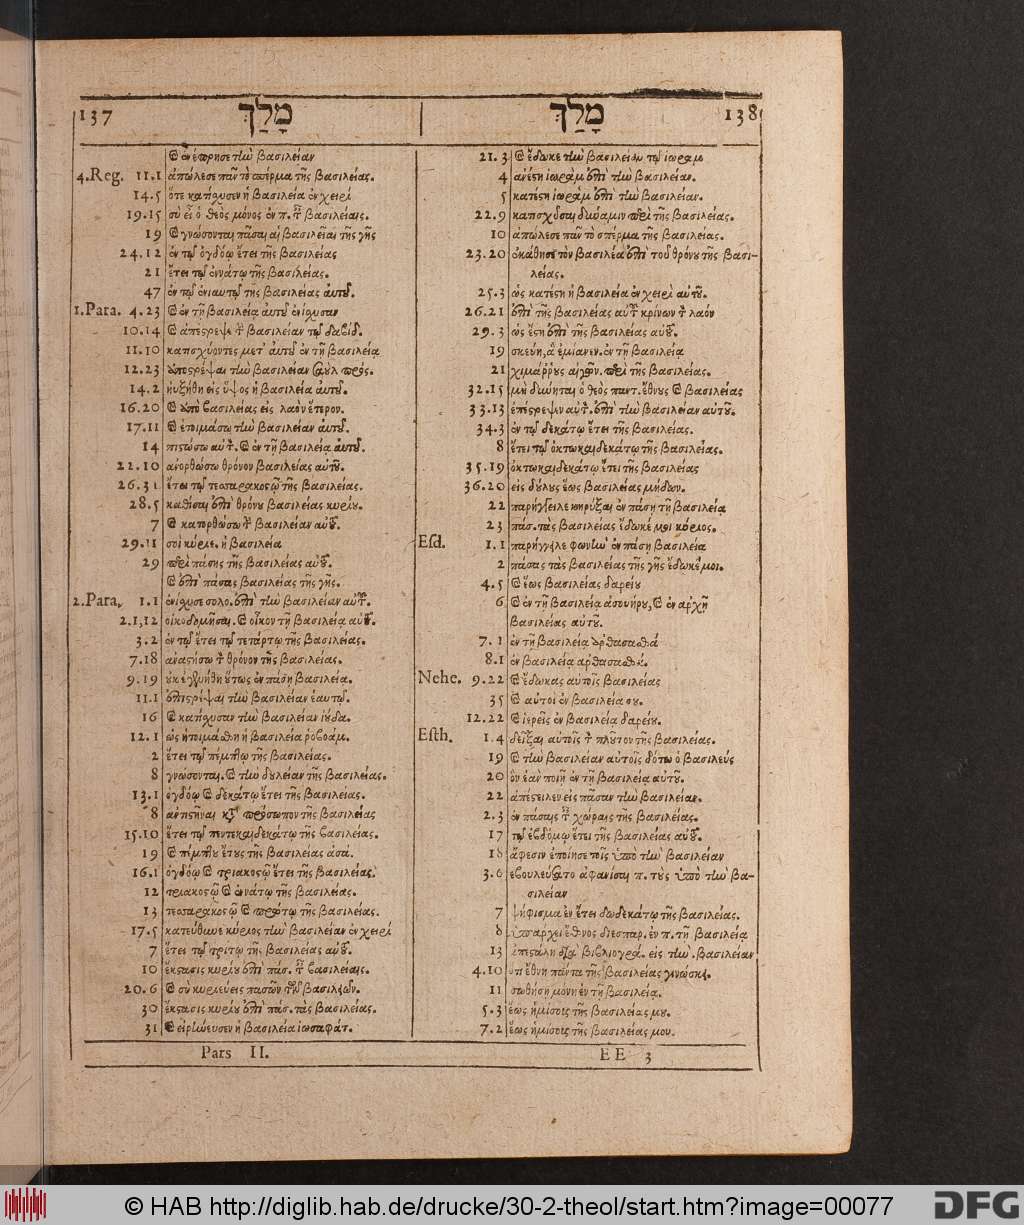 137 מָלַךְ
ἐν ἐπρησε τὴν βασιλείαν
4.Reg. 11.1 ἀπώλεσε πᾶν τὸ σπέρμα τῆς βασιλείας.
14.5 ὅτε κατίσχυσεν ἡ βασιλεία ἐν χειρὶ
19.15 σὺ εἶ ὁ θεὸς μόνος ἐν π. τ βασιλείαις.
19 καὶ γνώσονται πᾶσαι αἱ βασιλεῖαι τῆς γῆς
24.12 ἐν τῷ ὀγδόῳ ἔτει τῆς βασιλείας
21 ἔτει τῷ ἐννάτῳ τῆς βασιλείας.
47 ἐν τῷ ἐνιαυτῷ τῆς βασιλείας αὐτοῦ.
1.Para. 4.23 καὶ ἐν τῇ βασιλείᾳ αὐτοῦ ἐνίσχυσαν
10.14 καὶ ἀπέστρεψε τ βασιλείαν τῷ δαβίδ.
11.10 κατισχύοντες μετ' αὐτοῦ ἐν τῇ βασιλείᾳ
12.23 ἀποστρέψαι τὴν βασιλείαν σαὺλ πρός.
14.2 ηὐξήθη εἰς ὕψος ἡ βασιλεία αὐτοῦ.
16.20 καὶ ἀπὸ βασιλείας εἰς λαὸν ἕτερον.
17.11 καὶ ἑτοιμάσω τὴν βασιλείαν αὐτοῦ.
14 πιστώσω αὐτ. καὶ ἐν τῇ βασιλείᾳ αὐτοῦ.
22.10 ἀνορθώσω θρόνον βασιλείας αὐτοῦ.
26.31 ἔτει τῷ τεσσαρακοστῷ τῆς βασιλείας.
28.5 καθίσαι ἐπὶ θρόνου βασιλείας κυρίου.
7 καὶ κατορθώσω τ βασιλείαν αὐτοῦ.
29.11 σοὶ κύριε. ἡ βασιλεία
29 περὶ πάσης τῆς βασιλείας αὐτοῦ.
καὶ ἐπὶ πάσας βασιλείας τῆς γῆς.
2.Para. 1.1 ἐνίσχυσε σολο. ἐπὶ τὴν βασιλείαν αὐτ.
2.1,12 οἰκοδομῆσαι. καὶ οἶκον τῇ βασιλείᾳ αὐτοῦ.
3.2 ἐν τῷ ἔτει τῷ τετάρτῳ τῆς βασιλείας.
7.18 ἀναστήσω τ θρόνον τῆς βασιλείας.
9.19 οὐκ ἐγενήθη οὕτως ἐν πάσῃ βασιλείᾳ.
11.1 ἐπιστρέψαι τὴν βασιλείαν ἑαυτῷ.
16 καὶ κατίσχυσαν τὴν βασιλείαν ἰούδα.
12.1 ὡς ἡτοιμάσθη ἡ βασιλεία ῥοβοάμ.
2 ἔτει τῷ πέμπτῳ τῆς βασιλείας.
8 γνώσονται. καὶ τὴν δουλείαν τῆς βασιλείας.
13.1 ὀγδόῳ καὶ δεκάτῳ ἔτει τῆς βασιλείας.
8 ἀντιστῆναι κατὰ πρόσωπον τῆς βασιλείας
15.10 ἔτει τῷ πεντεκαιδεκάτῳ τῆς βασιλείας.
19 καὶ πέμπτου ἔτους τῆς βασιλείας ἀσά.
16.1 ὀγδόῳ καὶ τριακοστῷ ἔτει τῆς βασιλείας.
12 τριακοστῷ καὶ ἐννάτῳ τῆς βασιλείας.
13 τεσσαρακοστῷ καὶ πρώτῳ τῆς βασιλείας.
17.5 κατεύθυνε κύριος τὴν βασιλείαν ἐν χειρὶ
7 ἔτει τῷ τρίτῳ τῆς βασιλείας αὐτοῦ.
10 ἔκστασις κυρίου ἐπὶ πάσ. τ βασιλείαις.
20.6 καὶ σὺ κυριεύεις πασῶν τῶν βασιλειῶν.
30 ἔκστασις κυρίου ἐπὶ πάσ. τὰς βασιλείας.
31 καὶ εἰρήνευσεν ἡ βασιλεία ἰωσαφάτ.
Pars II.
מָלַךְ 138
21.3 καὶ ἔδωκε τὴν βασιλείαν τῷ ἰωράμ
4 ἀνέστη ἰωρὰμ ἐπὶ τὴν βασιλείαν.
5 κατέστη ἰωρὰμ ἐπὶ τὴν βασιλείαν.
22.9 κατισχῦσαι δύναμιν περὶ τῆς βασιλείας.
10 ἀπώλεσε πᾶν τὸ σπέρμα τῆς βασιλείας.
23.20 ἐκάθησε τὸν βασιλέα ἐπὶ τοῦ θρόνου τῆς βασι-
λείας.
25.3 ὡς κατέστη ἡ βασιλεία ἐν χειρὶ αὐτοῦ.
26.21 ἐπὶ τῆς βασιλείας αὐτ κρίνων τ λαόν
29.3 ὡς ἔστη ἐπὶ τῆς βασιλείας αὐτοῦ.
19 σκεύη, ἃ ἐμίανεν. ἐν τῇ βασιλείᾳ
21 χιμάρρους αἰγῶν. περὶ τῆς βασιλείας.
32.15 μὴ δύνηται ὁ θεὸς παντ. ἔθνους καὶ βασιλείας
33.13 ἐπέστρεψεν αὐτ. ἐπὶ τὴν βασιλείαν αὐτοῦ.
34.3 ἐν τῷ δεκάτῳ ἔτει τῆς βασιλείας.
8 ἔτει τῷ ὀκτωκαιδεκάτῳ τῆς βασιλείας.
35.19 ὀκτωκαιδεκάτῳ ἔτει τῆς βασιλείας
36.20 εἰς δούλους ἕως βασιλείας μήδων.
22 παρήγγειλε κηρύξαι ἐν πάσῃ τῇ βασιλείᾳ
23 πάσ. τὰς βασιλείας ἔδωκέ μοι κύριος.
Esd. 1.1 παρήγγειλε φωνὴν ἐν πάσῃ βασιλείᾳ
2 πάσας τὰς βασιλείας τῆς γῆς ἔδωκέ μοι.
4.5 καὶ ἕως βασιλείας δαρείου
6 καὶ ἐν τῇ βασιλείᾳ ἀσουήρου, καὶ ἐν ἀρχῇ
βασιλείας αὐτοῦ.
7.1 ἐν τῇ βασιλείᾳ ἀρθασασθά
8.1 ἐν βασιλείᾳ ἀρθασασθά.
Nehe. 9.22 καὶ ἔδωκας αὐτοῖς βασιλείας
35 καὶ αὐτοὶ ἐν βασιλείᾳ σου.
12.22 καὶ ἱερεῖς ἐν βασιλείᾳ δαρείου.
Esth. 1.4 δεῖξαι αὐτοῖς τ πλοῦτον τῆς βασιλείας.
19 καὶ τὴν βασιλείαν αὐτοῖς δότω ὁ βασιλεύς
20 ὃν ἐὰν ποιῇ ἐν τῇ βασιλείᾳ αὐτοῦ.
22 ἀπέστειλεν εἰς πᾶσαν τὴν βασιλείαν.
2.3 ἐν πάσαις τ χώραις τῆς βασιλείας.
17 τῷ ἑβδόμῳ ἔτει τῆς βασιλείας αὐτοῦ.
18 ἄφεσιν ἐποίησε τοῖς ὑπὸ τὴν βασιλείαν
3.6 ἐβουλεύσατο ἀφανίσαι π. τοὺς ὑπὸ τὴν βα-
σιλείαν
7 ψήφισμα ἐν ἔτει δωδεκάτῳ τῆς βασιλείας.
8 ὑπάρχει ἔθνος διεσπαρ. ἐν π. τῇ βασιλείᾳ
13 ἀπεστάλη διὰ βιβλιογρά. εἰς τὴν. βασιλείαν
4.10 ὅτι ἔθνη πάντα τῆς βασιλείας γινώσκει.
11 σωθήσῃ μόνη ἐν τῇ βασιλείᾳ.
5.3 ἕως ἡμίσους τῆς βασιλείας μου.
7.2 ἕως ἡμίσους τῆς βασιλείας μου.
EE 3
© HAB http://diglib.hab.de/drucke/30-2-theol/start.htm?image=00077
DFG